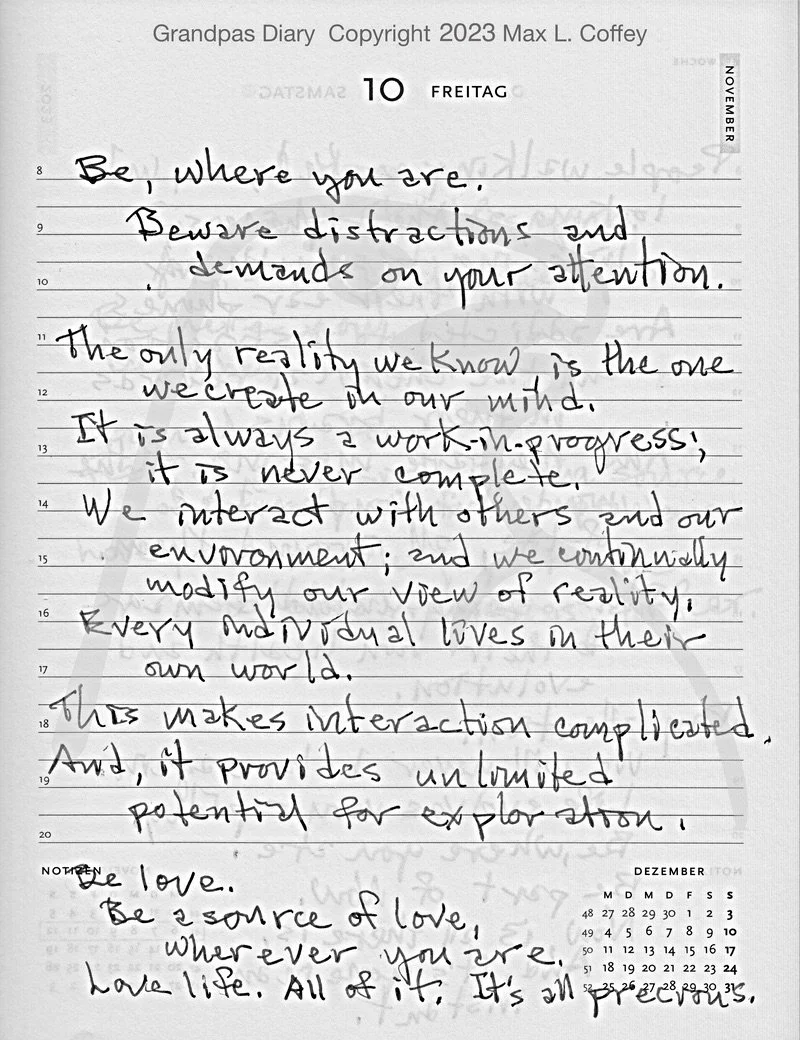 Grandpas Diary Copyright 2023 Max L. Coffey
10 FREITAG
NOVEMBER
8 Be, where you are.
9 Beware distractions and
10 demands on your attention.
11 The only reality we know is the one
12 we create in our mind.
It is always a work-in-progress;
13 it is never complete.
14 We interact with others and our
15 envoronment; and we continually
modify our view of reality.
16 Every individual lives in their
17 own world.
18 This makes interaction complicated.
And, it provides unlimited
19 potential for exploration.
20
NOTIZEN
Be love.
Be a source of love,
wherever you are.
Love life. All of it. It's all precious.
DEZEMBER
M D M D F S S
48 27 28 29 30 1 2 3
49 4 5 6 7 8 9 10
50 11 12 13 14 15 16 17
51 18 19 20 21 22 23 24
52 25 26 27 28 29 30 31